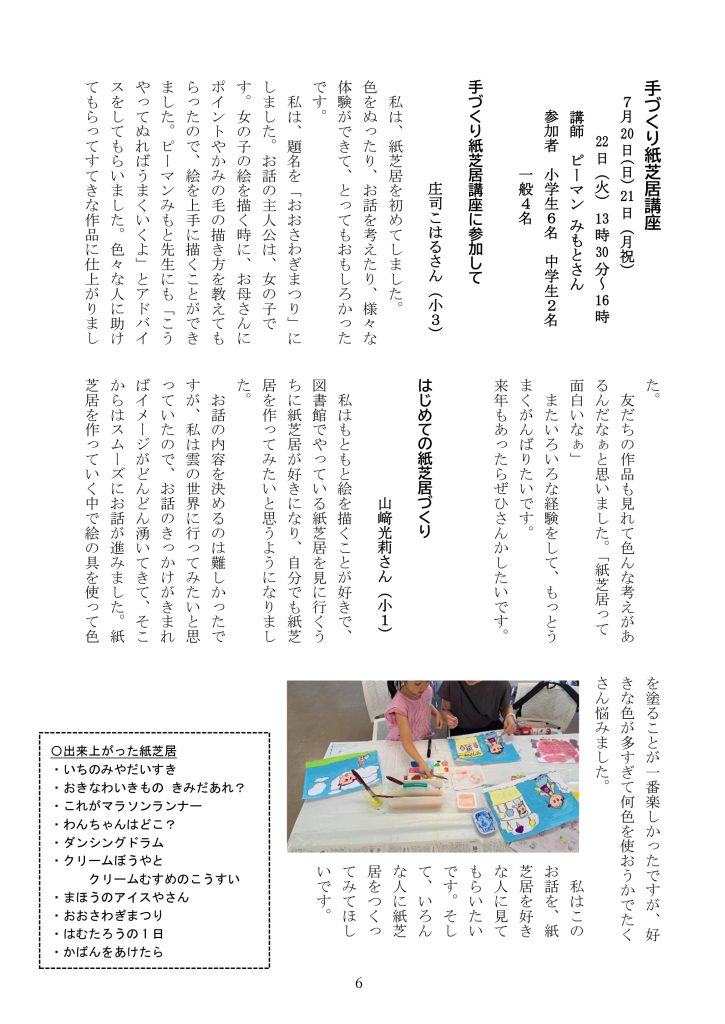 手づくり紙芝居講座
７月20日(日) 21日（月祝）
22日（火） 13時30分～16時
講師　ピーマン みもとさん
参加者　小学生６名　中学生２名
一般４名
手づくり紙芝居講座に参加して
庄司こはるさん（小３）
私は、紙芝居を初めてしました。
色をぬったり、お話を考えたり、様々な
体験ができて、とってもおもしろかった
です。
私は、題名を「おおさわぎまつり」に
しました。お話の主人公は、女の子で
す。女の子の絵を描く時に、お母さんに
ポイントやかみの毛の描き方を教えても
らったので、絵を上手に描くことができ
ました。ピーマンみもと先生にも「こう
やってぬればうまくいくよ」とアドバイ
スをしてもらいました。色々な人に助け
てもらってすてきな作品に仕上がりまし
た。
友だちの作品も見れて色んな考えがあ
るんだなぁと思いました。「紙芝居って
面白いなぁ」
またいろいろな経験をして、もっとう
まくがんばりたいです。
来年もあったらぜひさんかしたいです。
はじめての紙芝居づくり
山﨑光莉さん（小１）
私はもともと絵を描くことが好きで、
図書館でやっている紙芝居を見に行くう
ちに紙芝居が好きになり、自分でも紙芝
居を作ってみたいと思うようになりまし
た。
お話の内容を決めるのは難しかったで
すが、私は雲の世界に行ってみたいと思
っていたので、お話のきっかけがきまれ
ばイメージがどんどん湧いてきて、そこ
からはスムーズにお話が進みました。紙
芝居を作っていく中で絵の具を使って色
を塗ることが一番楽しかったですが、好
きな色が多すぎて何色を使おうかでたく
さん悩みました。
私はこの
お話を、紙
芝居を好き
な人に見て
もらいたい
です。そし
て、いろん
な人に紙芝
居をつくっ
てみてほし
いです。
〇出来上がった紙芝居
・いちのみやだいすき
・おきなわいきもの きみだあれ？
・これがマラソンランナー
・わんちゃんはどこ？
・ダンシングドラム
・クリームぼうやと
クリームむすめのこうすい
・まほうのアイスやさん
・おおさわぎまつり
・はむたろうの１日
・かばんをあけたら
6